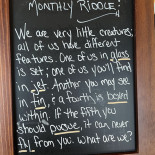 MONTHLY RIDDLE!
We are very little creatures;
all of us have different
features. One of us in glass
is set; one of us you'll find
in jet. Another you may see
in tin, & a fourth is boxed
within. If the fifth you
should pursue, it can never
fly from you. What are we?